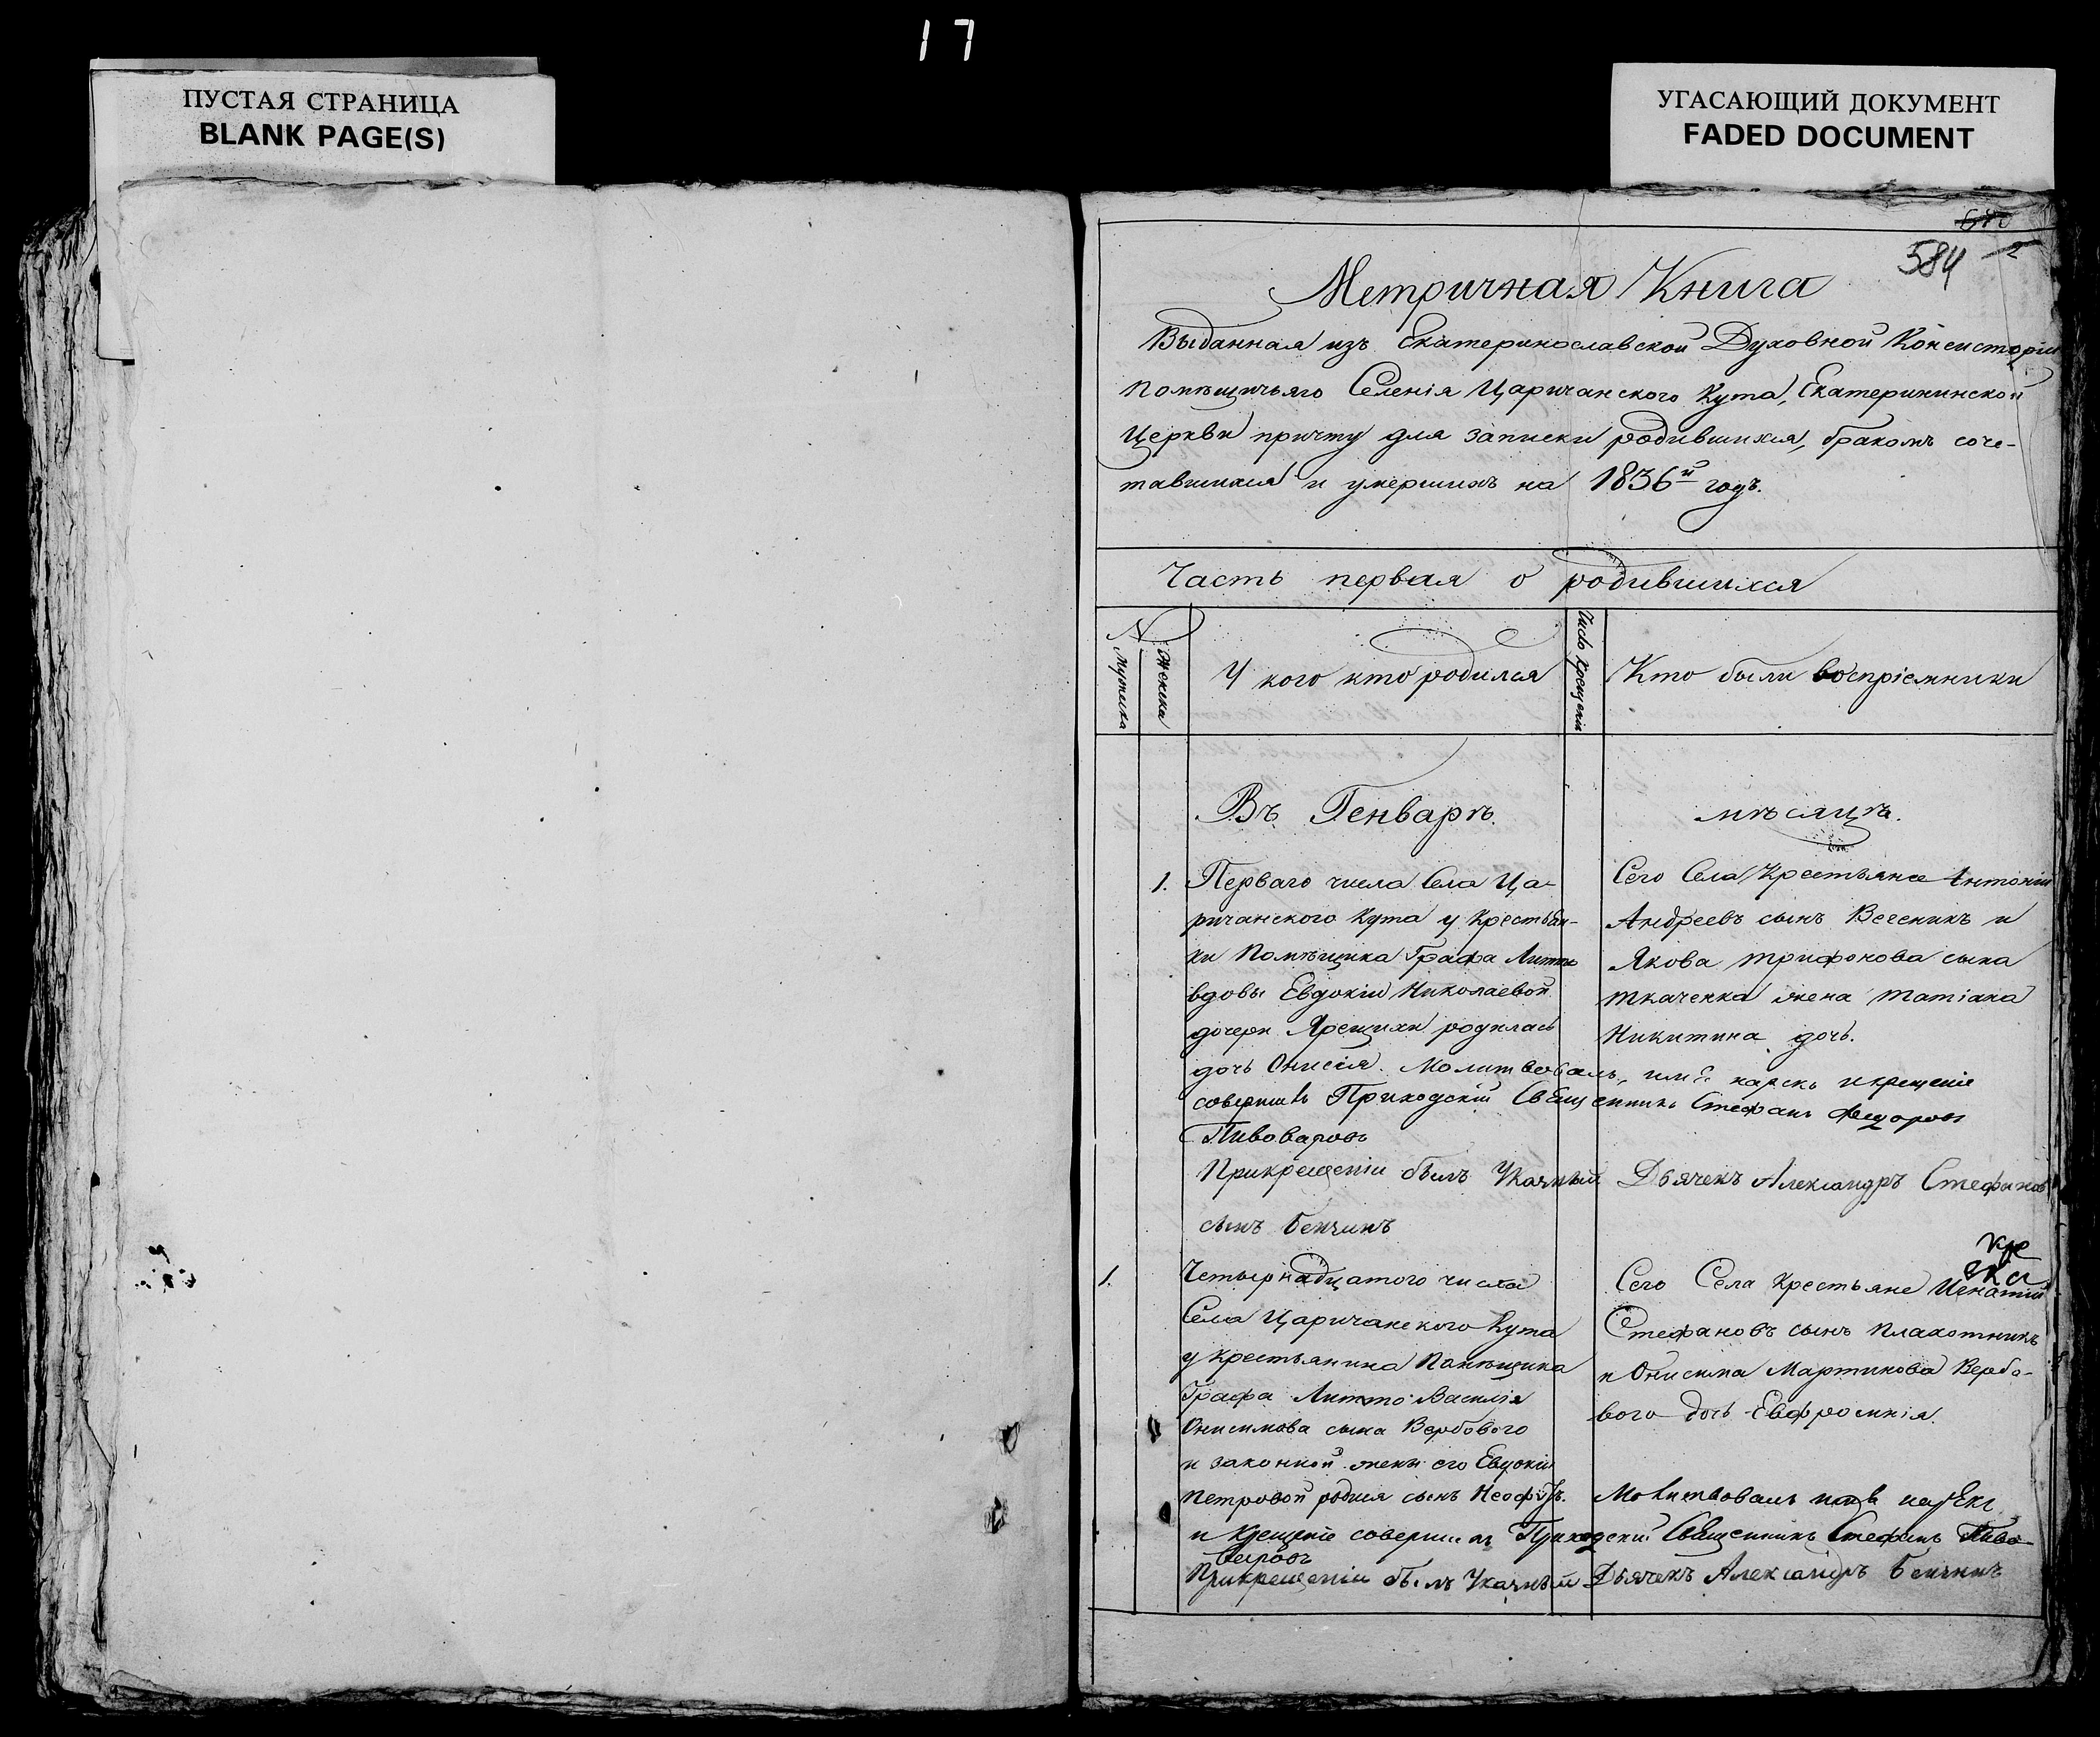 17
ПУСТАЯ СТРАНИЦА
BLANK PAGE(S)
УГАСАЮЩИЙ ДОКУМЕНТ
FADED DOCUMENT
584
2
Метричная Книга
Выданная изъ Екатеринославской Духовной Консисторіи
Помѣщичьяго Селенія Царичанского Кута, Екатерининской
Церкви причту для записки родившихся, бракомъ соче-
тавшихся и умершихъ на 1836й годъ.
Часть первая о родившихся
N
Мужеска
Женска
У кого кто родился
Число Крещенія
Кто были воспріемники
Въ Генварѣ
мѣсяцѣ.
1. Перваго числа Села Ца-
ричанского Кута у Крестьян-
ки Помѣщика Графа Литто
вдовы Евдокіи Николаевой
дочери Ярещихи родилась
дочь Онисія. Молитвовалъ, имя нарекъ и крещеніе
совершилъ Приходскій Священникъ Стефанъ Федоровъ
Пивоваровъ
При крещеніи былъ Указный Дьячекъ Александръ Стефановъ
сынъ Бенчинъ
Сего Села Крестьяне Антоній
Андреевъ сынъ Веченикъ и
Якова Трифонова сына
Ткаченка жена Татіана
Никитина дочь.
1.
Четырнадцатого числа
Села Царичанского Кута
у крестьянина Помѣщика
Графа Литто Василія
Онисимова сына Вербового
и законной жены его Евдокіи
Петровой родился сынъ Неофитъ. Молитвовалъ имя нарекъ
и Крещеніе совершилъ Приходскій Священникъ Стефанъ Пиво-
варовъ
При крещеніи былъ Указный Дьячекъ Александръ Бенчинъ
Сего Села Крестьяне Игнатій
Стефановъ сынъ Плахотникъ
и Онисима Мартинова Вербо-
вого дочь Евфросинія.